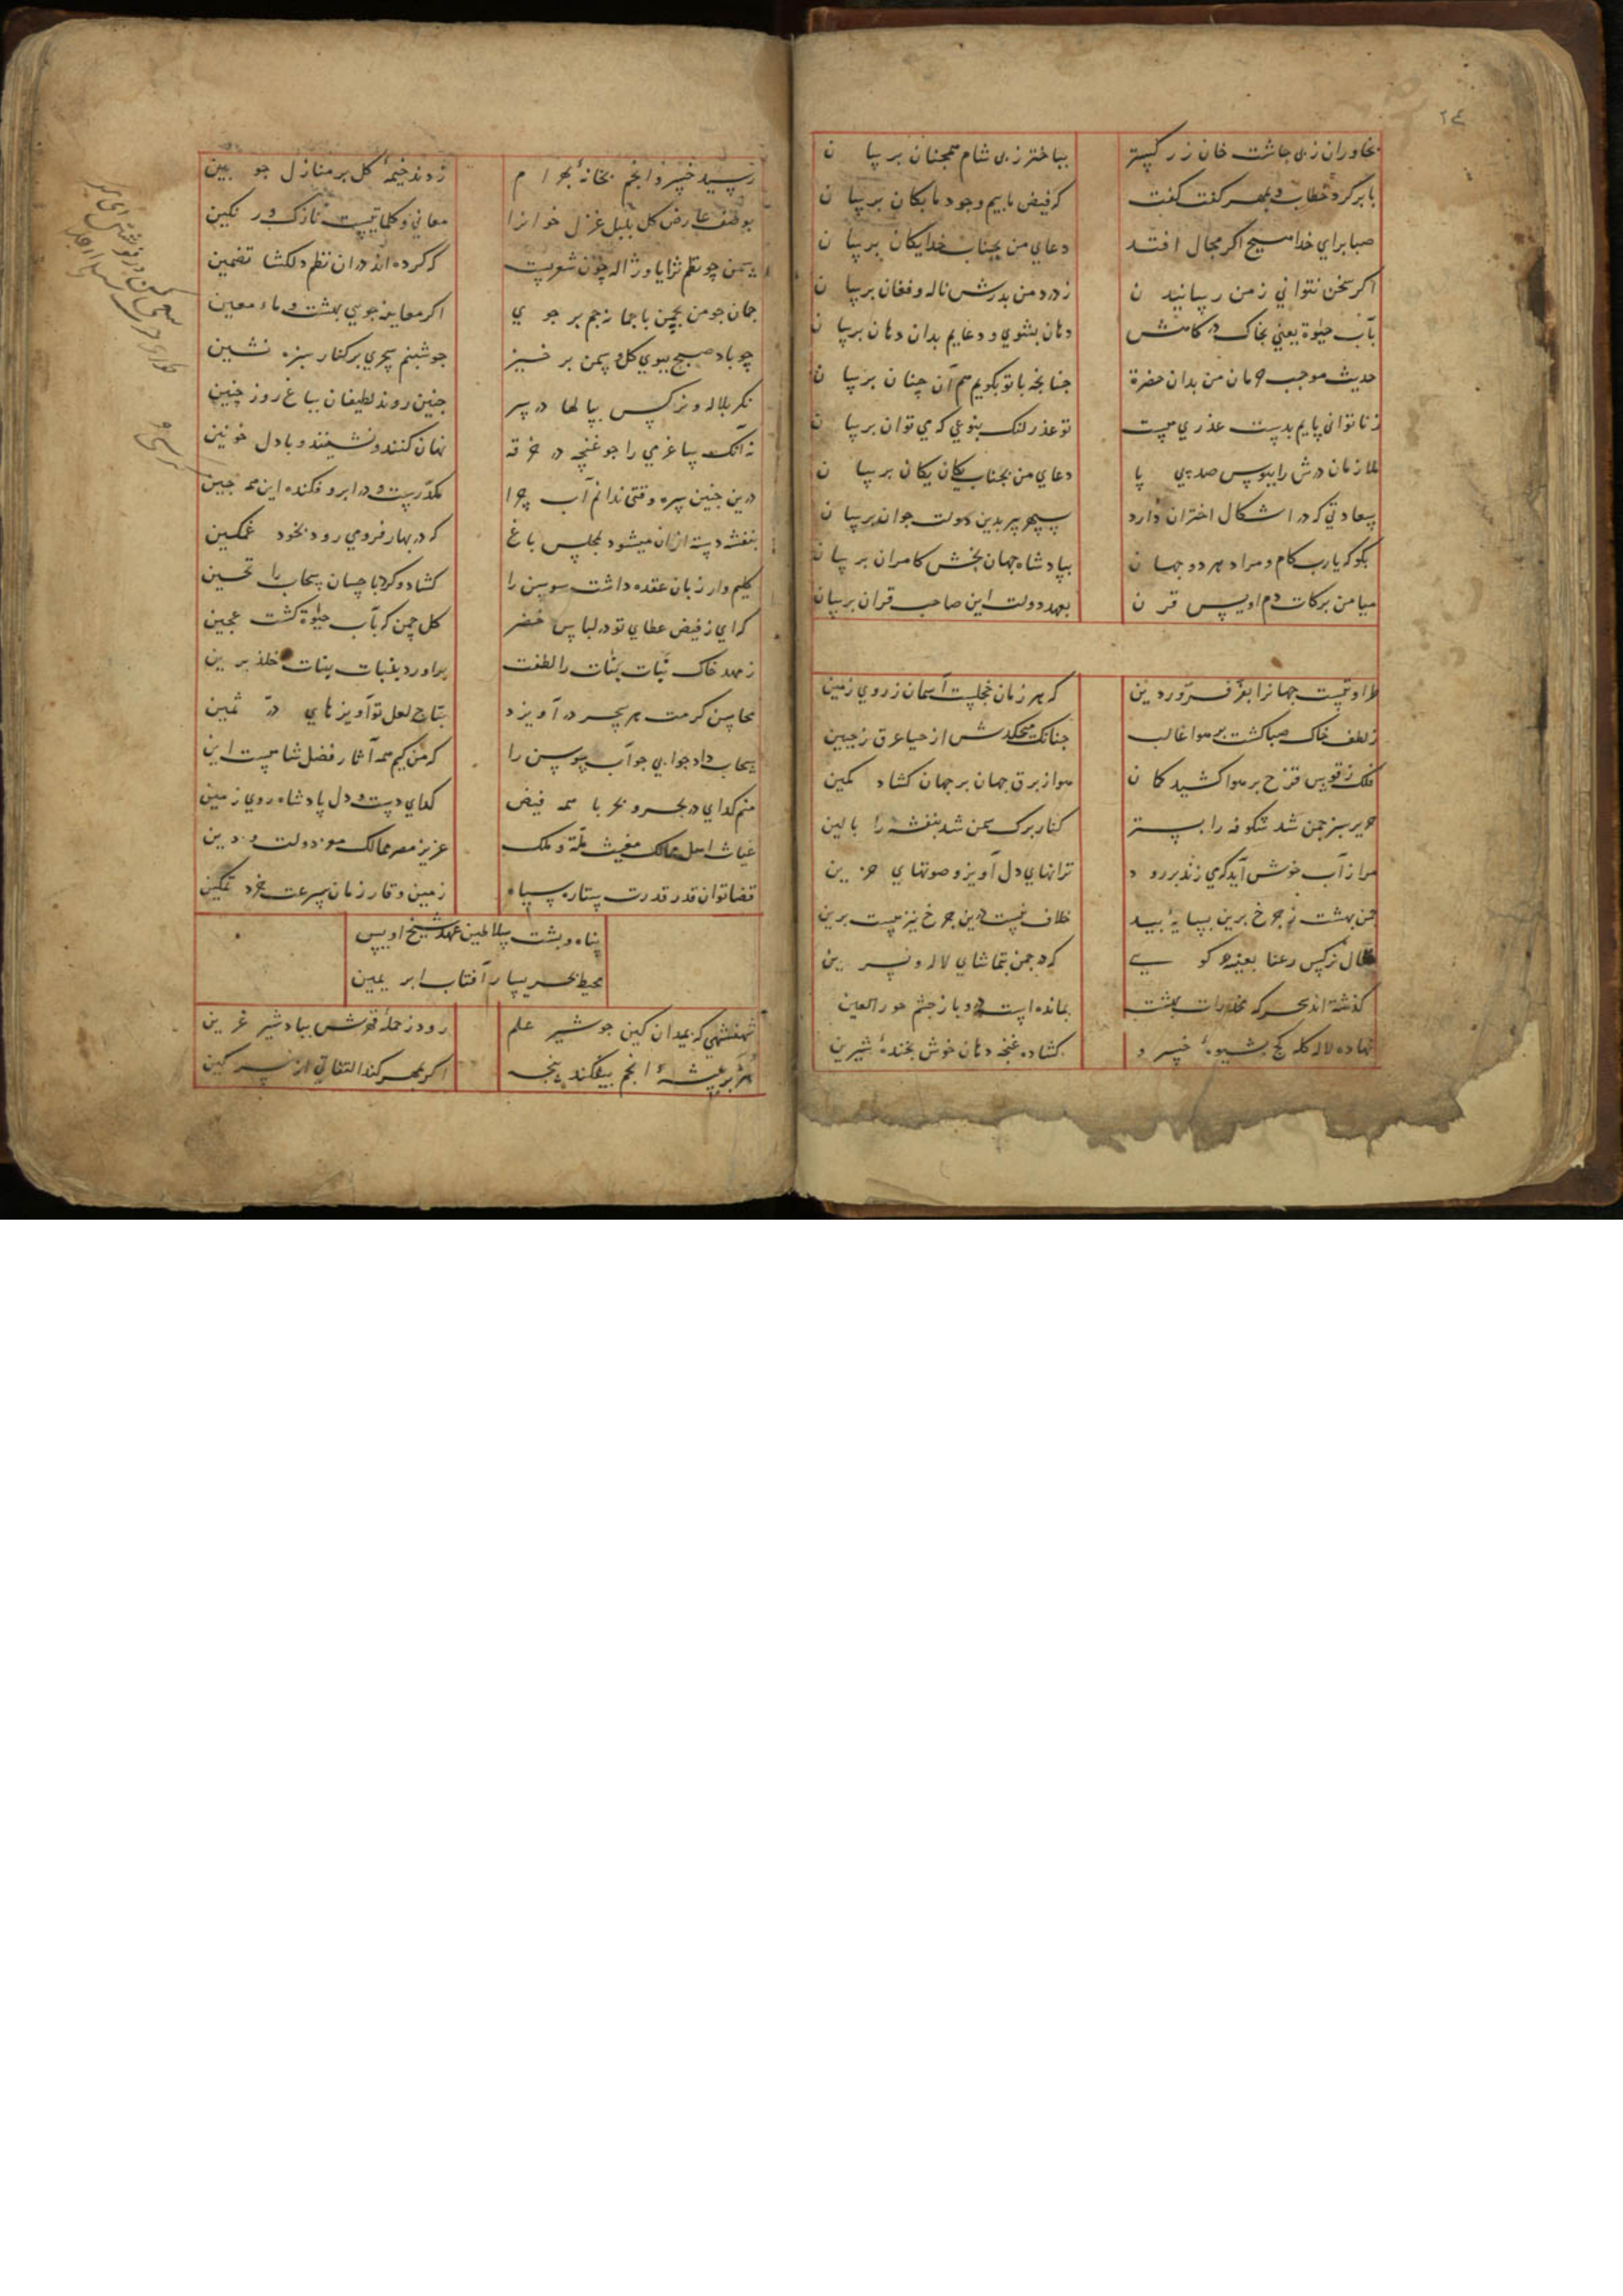 ۲٤
بخاوران زپی چاشت خان زر کستر
بباختر زپی شام همچنان برسان
بابر کرد خطاب و بمهر کفت کفت
که فیض ما بیم وجود ما بکان برسان
صبا برای خدا صبح اکر مجال افتد
دعای من بجناب خدایکان برسان
اکر سخن نتوانی ز من رسانیدن
ز درد من بدرش ناله و فغان برسان
بآب حیوة یعنی بخاک در کامش
دهان بشوی و دعایم بدان دهان برسان
حدیث موجب حرمان من بدان حضرة
چنانچه با تو بکویم هم آن چنان برسان
ز ناتوانی پایم بدست عذری هست
تو عذر لنک بنوعی که می توان برسان
ملازمان درش را ببوس صد پی پا
دعای من بجناب یکان یکان برسان
سعادتی که در اشکال اختران دارد
سپهر پیر بدین دولت جوان برسان
بکو که یارب کام و مراد هر دو جهان
بپادشاه جهان بخش کامران برسان
میامن برکات دم اویس قرن
بعهد دولت این صاحب قران برسان
طراوتیست جهانرا بفر فروردین
که هر زمان خجلست آسمان ز روی زمین
ز لطف خاک صبا کشت بر هوا غالب
چنانک میچکدش از حیا عرق ز جبین
فلک ز قوس قزح بر هوا کشید کمان
هوا ز برق جهان بر جهان کشاد کمین
حریر سبز چمن شد شکوفه را بستر
کنار برک سمن شد بنفشه را بالین
مرا ز آب خوش آید که می زند بر رود
ترانهای دل آویز و صوتهای حزین
چمن بهشت ز چرخ برین بسایه بید
خلاف نیست درین چرخ نیز هست برین
نرکس رعنا بعینه کویی
که در چمن بتماشای لاله و نسرین
کذشته اند سحر که مخدرات بهشت
بمانده است درو باز چشم حور العین
نهاده لاله کله کج بشیوهٔ خسرو
کشاده غنچه دهان خوش بخندهٔ شیرین
رسید خسرو انجم بخانهٔ بهرام
زدند خیمهٔ کل بر منازل جو بین
بوصف عارض کل بلبل غزل خوانرا
معانی و کلماتیست نازک و رنکین
سمن چو نظم ثریا و ژاله چون شعریست
که کرده اند در ان نظم دلکشا تضمین
چمان چو من بچمن با چمانه جم بر جوی
اکر معاینه جویی بهشت و ماء معین
چو باد صبح ببوی کل و سمن بر خیز
چو شبنم سحری بر کنار سبزه نشین
نکر بلاله و نرکس پیالها در سر
چنین روند لطیفان بباغ روز چنین
نه آنک ساغر می را چو غنچه در خرقه
نهان کنند و نشینند و با دل خونین
درین چنین سره وقتی ندانم آب چرا
مکدّرست و در ابرو فکنده این همه چین
بنفشه دسته ازان میشود بمجلس باغ
که در بهار فرو می رود بخود غمکین
کلیم وار زبان عقده داشت سوسن را
کشاد و کرد باحسان سحاب را تحسین
که ای ز فیض عطای تو در لباس خضر
کل چمن که بآب حیوة کشت عجین
ز مهد خاک نبات بنات را لطفت
براورد بغبات بنات خلد برین
محاسن کرمت هر سحر در آویزد
بتاج لعل تو آویزهای درّ ثمین
سحاب داد جوابی چو آب سوسن را
که من کیم همه آثار فضل شاهست این
منم کدای در بحر و بحر با همه فیض
کدای دست و دل پادشاه روی زمین
غیاث اهل ممالک مغیث ملة و ملک
عزیز مصر ممالک معز دولت و دین
قضا توان قدر قدرت ستاره سپاه
زمین وقار زمان سرعت خرد تمکین
پناه و پشت سلاطین عهد شیخ اویس
محیط بحر یسار آفتاب ابر یمین
شهنشهی که بمیدان کین چو شیر علم
رود ز حملهٔ قهرش بباد شیر عرین
هژبر بیشهٔ انجم بیفکند پنجه
اکر بمهر کند التفاتی از سر کین